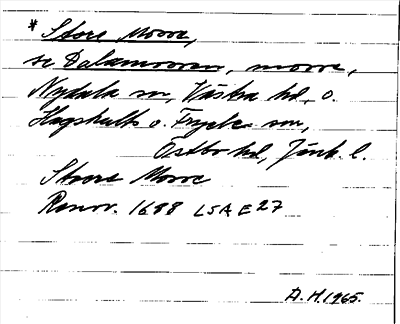 * Store Mosse,
se Dalamossen, mosse,
Nydala sn, Västra hd, o.
Hagshults o. Fryele sn,
Östbo hd, Jönk. l.
Stoora Mosse
Renov. 1698 LSA E27
A.H.1965.